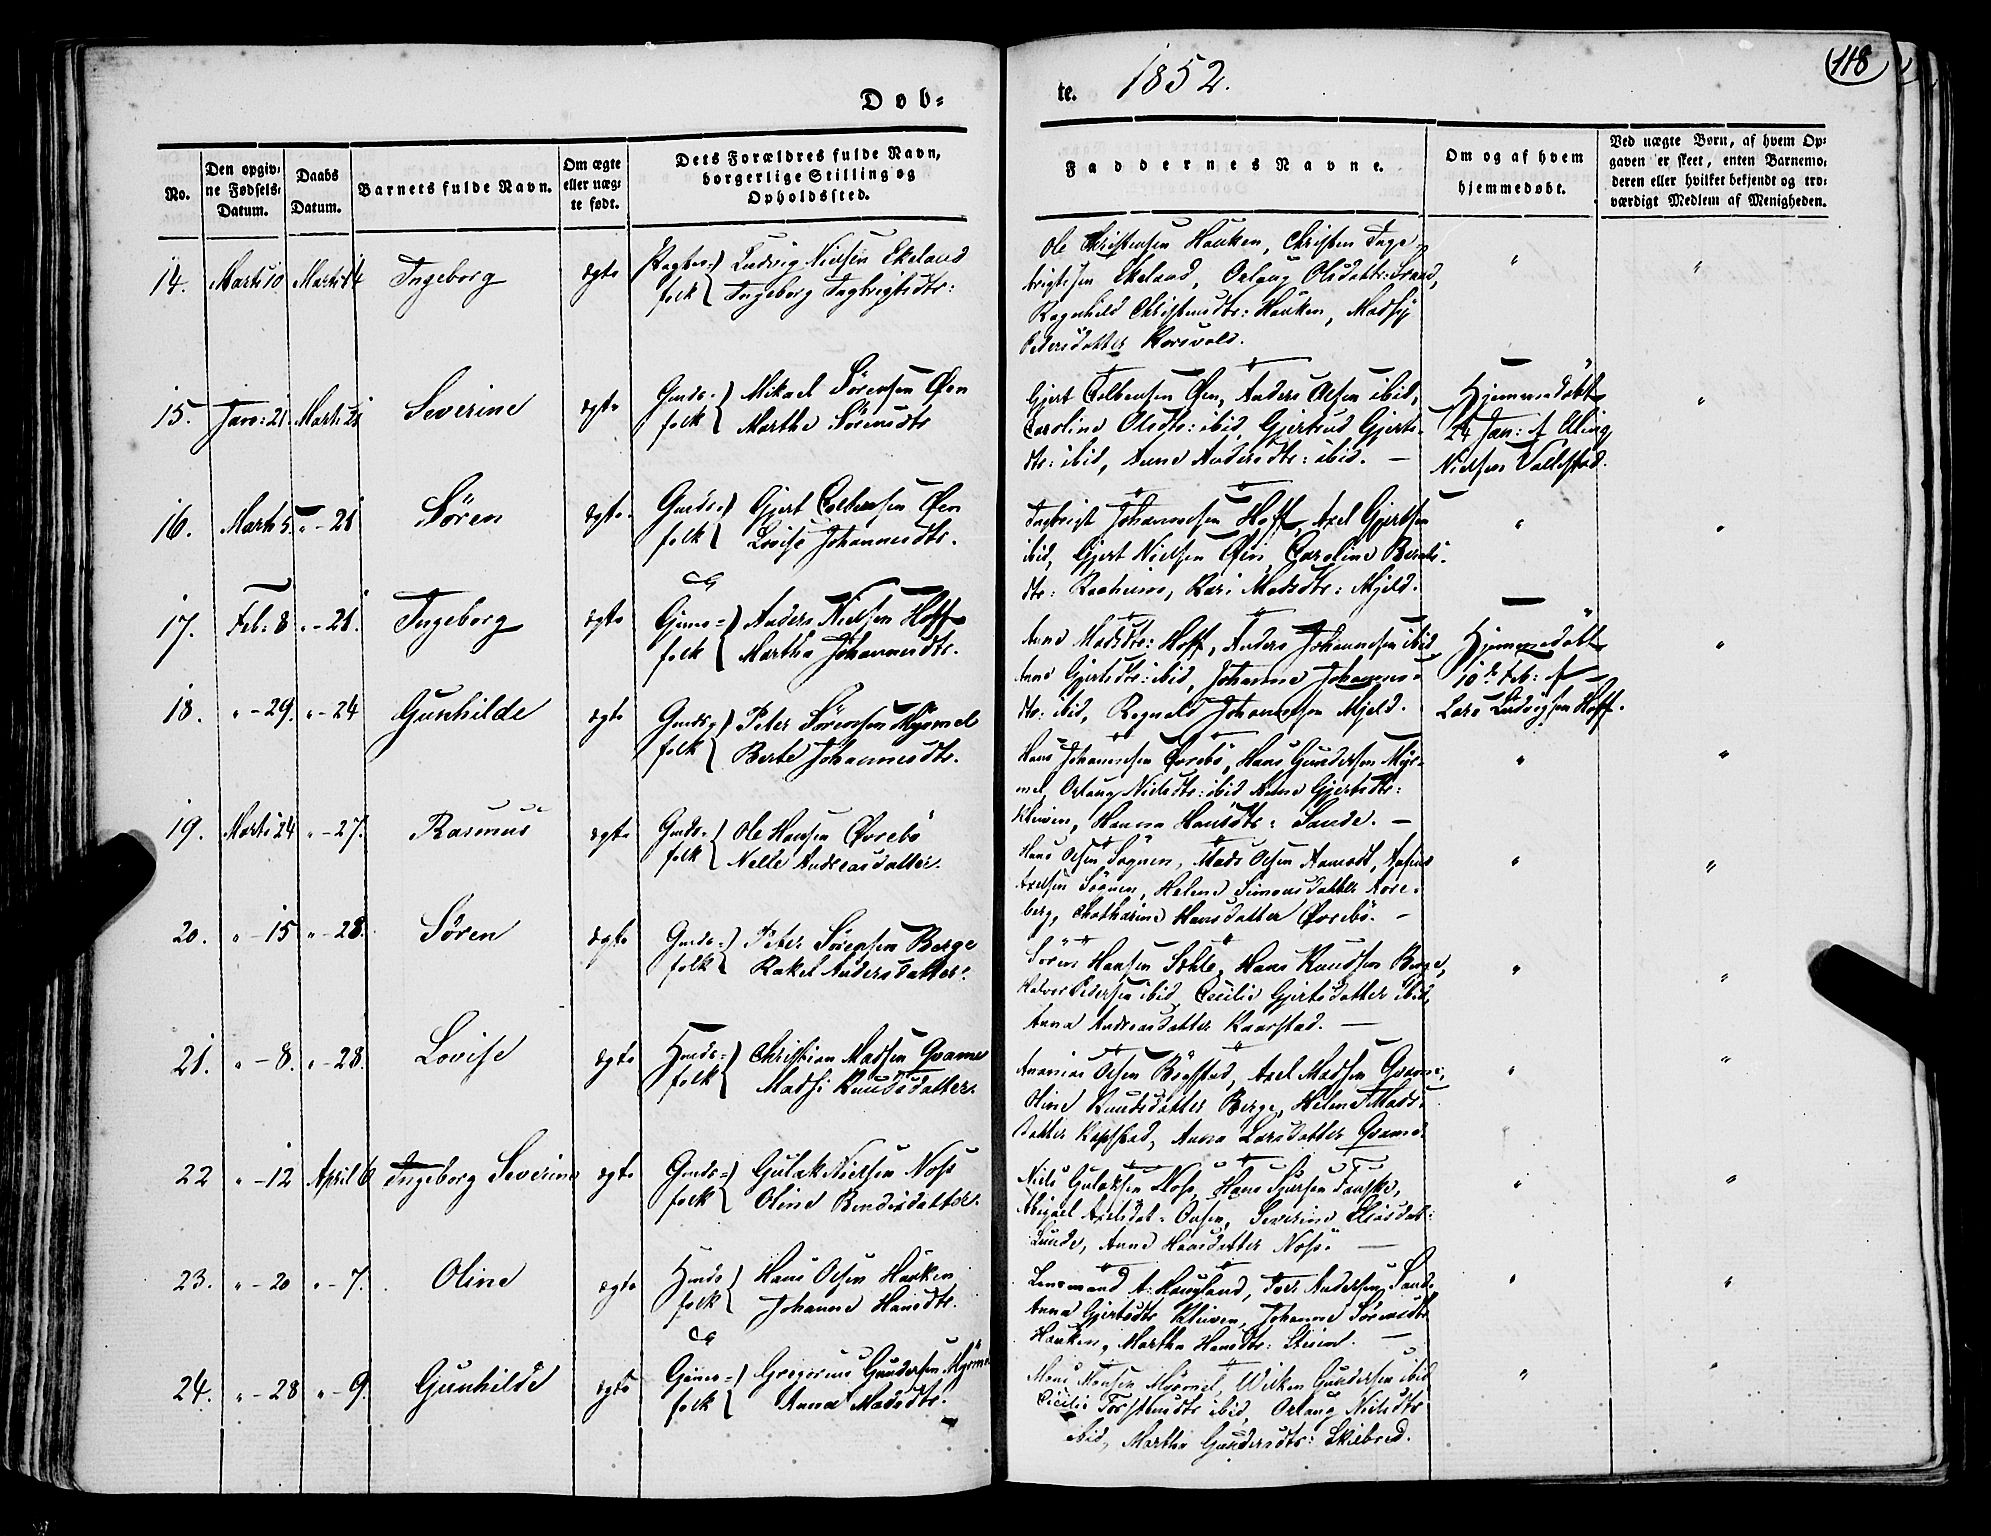 Døb-
te. 1852.
118
No.
Den opgiv-
ne Fødsels-
Datum.
Daabs
Datum.
Barnets fulde Navn.
Om ægte
eller uæg-
te født.
Dets Forældres fulde Navn,
borgerlige Stilling og
Opholdssted.
Faddernes Navne.
Om og af hvem
hjemmedøbt.
Ved uægte Børn, af hvem Op-
gaven er skeet, enten Barnemo-
deren eller hvilket bekjendt og tro-
værdigt Medlem af Menigheden.
14. Marts 10 Marts 14 Ingeborg ægte
folk Ludvig Nielsen Ekeland
Ingeborg Ingbrigtsdtr:
Ole Christensen Hauken, Christen Inge-
brigtsen Ekeland, Oldatt:
Ragnhild Christensdtr: Hauken, Madsy
Pedersdatter Korsvold.
15. Janr: 21. Marts 21 Severine ægte
Gmds- Mikael Sørensen Øen
folk Marthe Sørensdtr
Gjert Colbensen Øen, Anders Olsen ibid,
Caroline Olsdtr: ibid, Gjertrud Gjerts-
dtr: ibid, Anne Andersdtr: ibid. —
Hjemmedøbt
24 Jan: af
Nielsen
16. Marts 5. " - 21 Søren ægte
Gmds- Gjert Colbensen Øen
folk Lovise Johannesdtr.
Ingbrigt Johannesen Hoff, Axel Gjertsen
ibid, Gjert Nielsen Øen, Caroline Bernts-
dtr: Kari Madsdtr: Mjeld.
17. Feb: 8 " - 21. Ingeborg ægte
Anders Nielsen Hoff
folk Martha Johannesdtr.
Anne Madsdtr: Hoff, Anders Johannesen ibid
Anne Gjertsdtr: ibid, Johanne Johannes-
dtr: ibid, Johannesen Mjeld.
Hjemmedøbt
10de Feb: af
Lars Ludvigsen Hoff.
18. " - 29. " - 24 Gunhilde ægte
Gmds- Peter Sørensen Myrmel
folk Berte Johannesdtr.
Hans Johannesen Øvrebö, Hans Gundersen Myr-
mel, Nielsdtr: ibid Anne Gjertsdtr:
Kleiven, Hanna Hansdtr: Sande. —
19. Marts 24 " - 27. Rasmus ægte
Gmds- Ole Hansen Øvrebö
folk Nelle Andreasdatter.
Hans Olsen Sognen, Mads Olsen
Axelsen Sognen, Helene Simonsdatter
berg, Chatharine Hansdatter Øvrebö. —
20. " - 15 " - 28. Søren ægte
Gmds- Peter Sørensen Berge
folk Rakel Andersdatter.
Søren Hansen Hans Knudsen Berge,
Halvor Pedersen ibid, Cecilie Gjertsdatter ibid,
Anna Andreasdatter Kaarstad. —
21. " - 8. " - 28. Lovise ægte
folk Christian Madsen Qvame
Madsi Knudsdatter.
Ananias Olsen Axel Madsen Qvame,
Oline Knudsdatter Berge, Helene Mads-
datter Anna Larsdatter Qvame
22 " - 12 April 6 Ingeborg Severine ægte
Gmds- Gulak Nielsen Noss
folk Oline Bendixdatter.
Niels Gulaksen Noss, Hans
Abigael Axelsdat: Severine
Lunde, Anne Hansdatter Noss. —
23. " - 20 " - 7. Oline ægte
folk Hans Olsen Hauken
Johanne Hansdtr.
Lensmand A: Haugland, Anders Sande
Anna Gjertsdtr Kleiven, Johanne Sørensdtr
Hauken, Martha Hansdtr: —
24. " - 28 " - 9. Gunhilde ægte
Gregorius Gundersen Myrmel
folk Anna Madsdtr.
Mons Monsen Myrmel, Willem Gundersen ibid
Cicilie Torstensdtr ibid, Nielsdtr
ibid, Martha Gundersdtr: Skilbred.